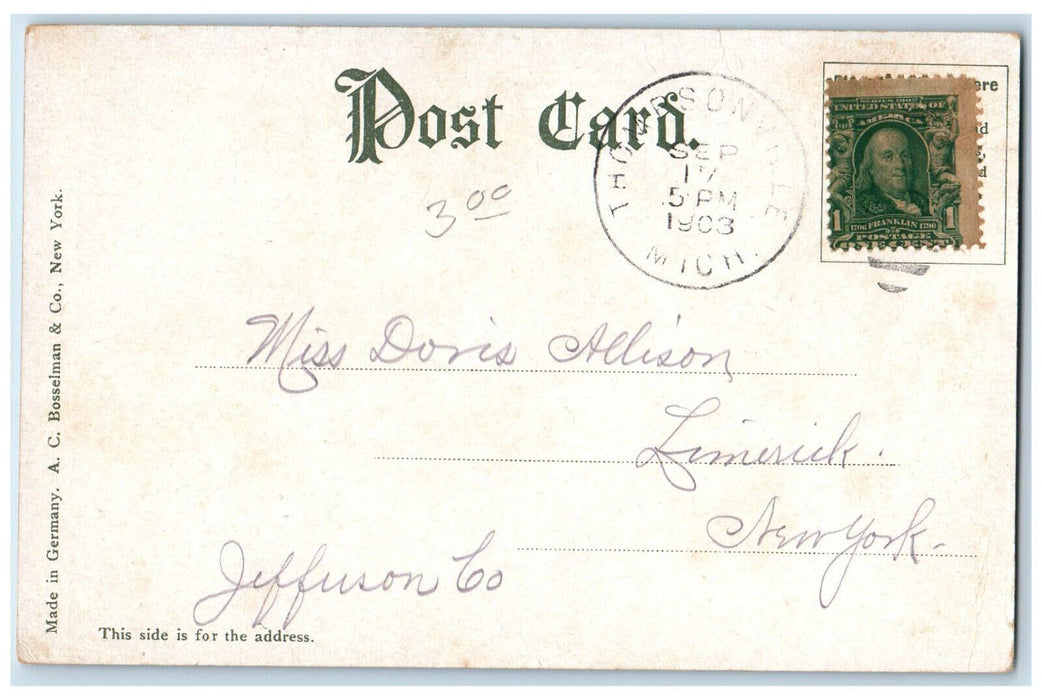 Post Card.
THOMPSONVILLE
SEP
17
5 PM
1903
MICH.
ere
nd
d
SERIES 1902
UNITED STATES OF
AMERICA
1 1706 FRANKLIN 1790 1
POSTAGE
3 00
Miss Doris Allison
Limerick.
New York-
Jefferson Co
This side is for the address.
Made in Germany. A. C. Bosselman & Co., New York.